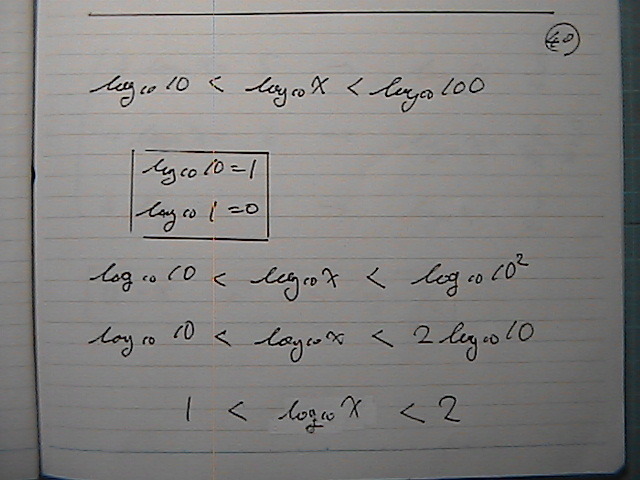 40
log₁₀ 10 < log₁₀ x < log₁₀ 100
log₁₀ 10 = 1
log₁₀ 1 = 0
log₁₀ 10 < log₁₀ x < log₁₀ 10²
log₁₀ 10 < log₁₀ x < 2 log₁₀ 10
1 < log₁₀ x < 2